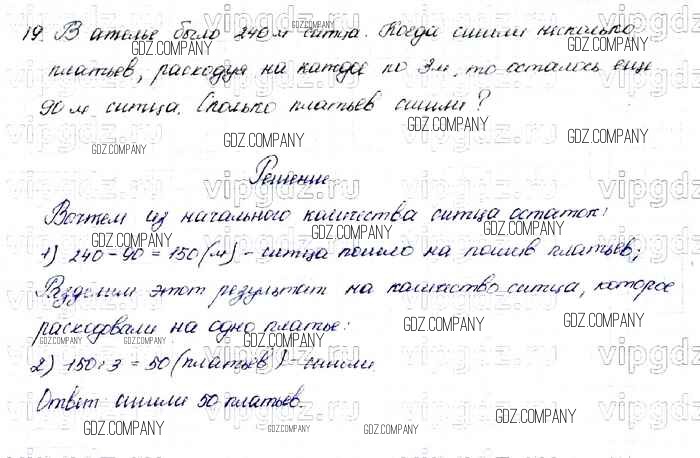 19. В ателье было 240 м ситца. Когда сшили несколько
платьев, расходуя на каждое по 3м, то осталось еще
90 м ситца. Сколько платьев сшили?
Решение
Вычтем из начального количества ситца остаток:
1) 240 - 90 = 150 (м) - ситца пошло на пошив платьев;
Разделим этот результат на количество ситца, которое
расходовали на одно платье:
2) 150 : 3 = 50 (платьев) - сшили
Ответ сшили 50 платьев.
GDZ.COMPANY
vipgdz.ru